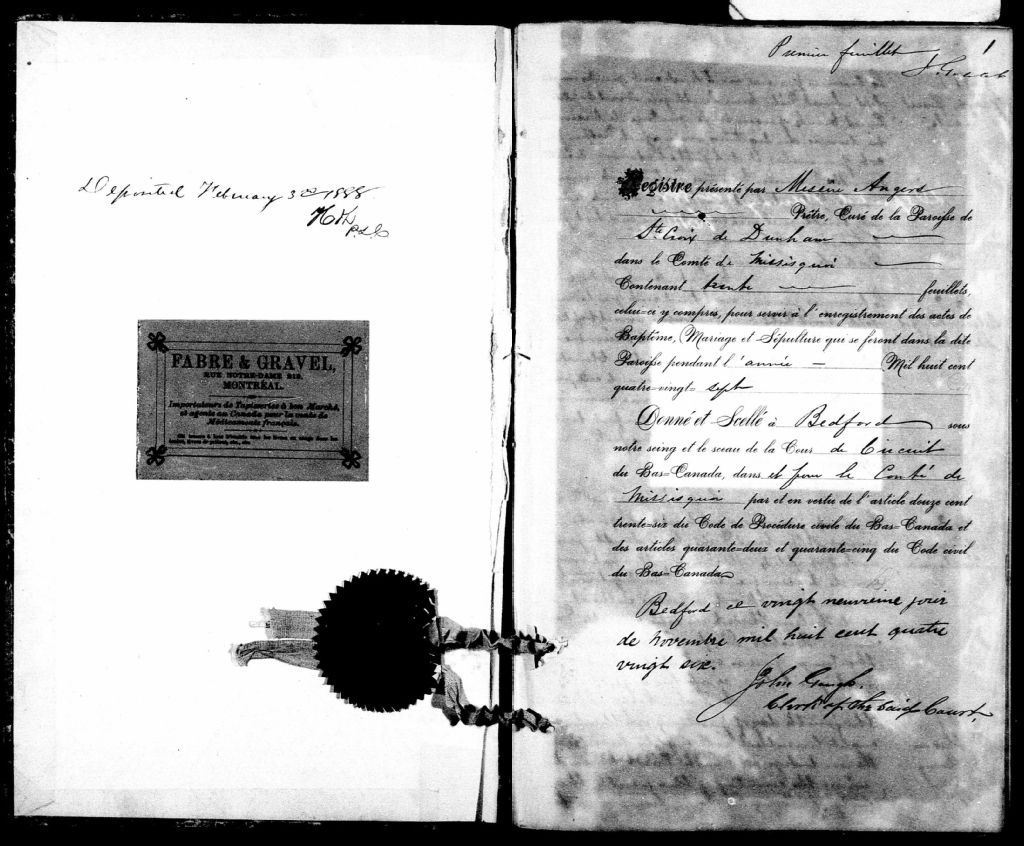 Deposited February 3rd 1888.
FABRE & GRAVEL,
RUE NOTRE-DAME 219.
MONTRÉAL.
Importateurs de Tapisseries à bon Marché,
et agents au Canada pour la vente de
Médicaments français.
Premier feuillet 1
Registre présenté par Messire Angers
Prêtre, Curé de la Paroisse de
Ste Croix de Dunham
dans le Comté de Missisquoi
Contenant trente feuillets,
celui-ci y compris, pour servir à l'enregistrement des actes de
Baptême, Mariage et Sépulture qui se feront dans la dite
Paroisse pendant l'année — Mil huit cent
quatre-vingt sept
Donné et Scellé à Bedford sous
notre seing et le sceau de la Cour de Circuit
du Bas-Canada, dans et pour le Comté de
Missisquoi par et en vertu de l'article douze cent
trente-six du Code de Procédure civile du Bas-Canada et
des articles quarante-deux et quarante-cinq du Code civil
du Bas-Canada
Bedford ce vingt neuvieme jour
de novembre mil huit cent quatre
vingt six.
John Gough.
Clerk of the said Court,